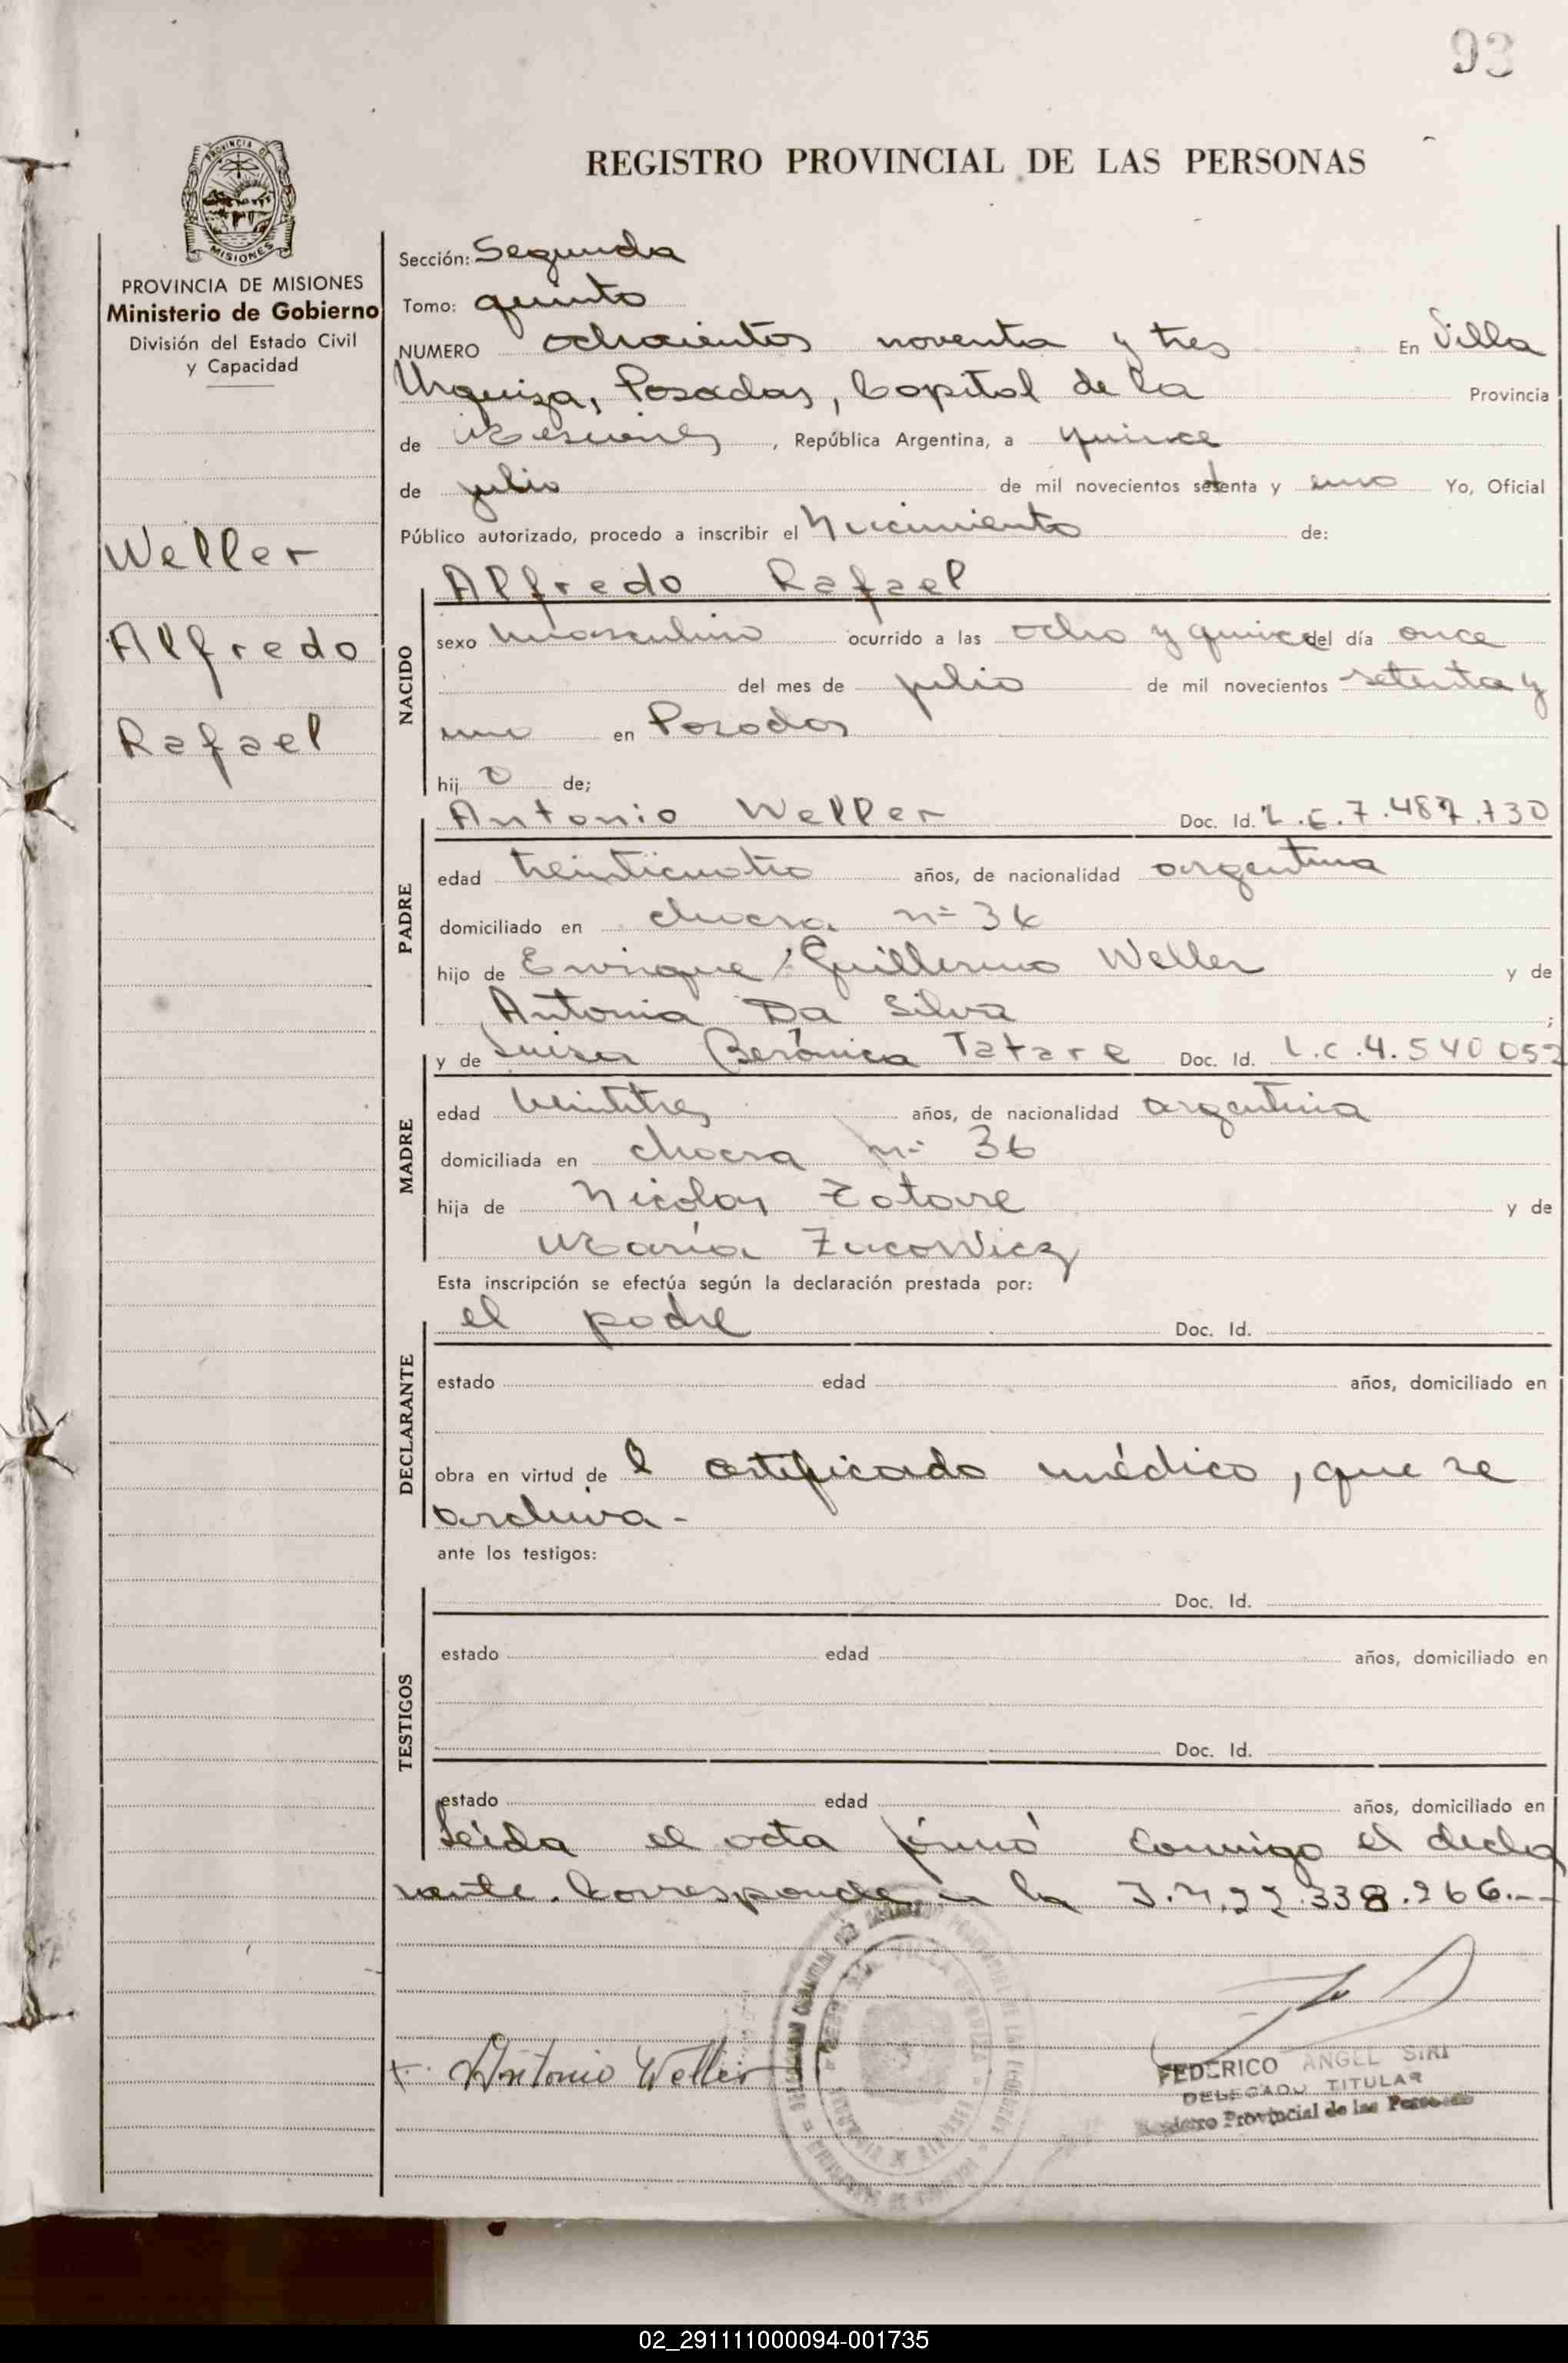 93
REGISTRO PROVINCIAL DE LAS PERSONAS
PROVINCIA DE
MISIONES
PROVINCIA DE MISIONES
Ministerio de Gobierno
División del Estado Civil
y Capacidad
Weller
Alfredo
Rafael
Sección: Segunda
Tomo: quinto
NUMERO ochocientos noventa y tres En Villa
Urquiza, Posadas, Capital de la Provincia
de Misiones, República Argentina, a quince
de julio de mil novecientos setenta y uno Yo, Oficial
Público autorizado, procedo a inscribir el Nacimiento de:
Alfredo Rafael
NACIDO
sexo masculino ocurrido a las ocho y quince del día once
del mes de julio de mil novecientos setenta y
uno en Posadas
hijo de;
Antonio Weller Doc. Id. L.E. 7.487.130
PADRE
edad treinticuatro años, de nacionalidad argentina
domiciliado en chacra nº 36
hijo de Enrique Guillermo Weller y de
Antonia Da Silva;
y de Luisa Berónica Tatare Doc. Id. L.C. 4.540 052
MADRE
edad veintitres años, de nacionalidad argentina
domiciliada en chacra nº 36
hija de Nicolas Tatare y de
María Zucowicz
Esta inscripción se efectúa según la declaración prestada por:
el padre Doc. Id.
DECLARANTE
estado edad años, domiciliado en
obra en virtud de l certificado médico, que se
archiva -
ante los testigos:
Doc. Id.
TESTIGOS
estado edad años, domiciliado en
Doc. Id.
estado edad años, domiciliado en
Leída el acta firmó conmigo el decla
rante. Corresponde a la 22.338.266.--
Antonio Weller
FEDERICO ANGEL SIRI
DELEGADO TITULAR
Registro Provincial de las Personas
02_291111000094-001735